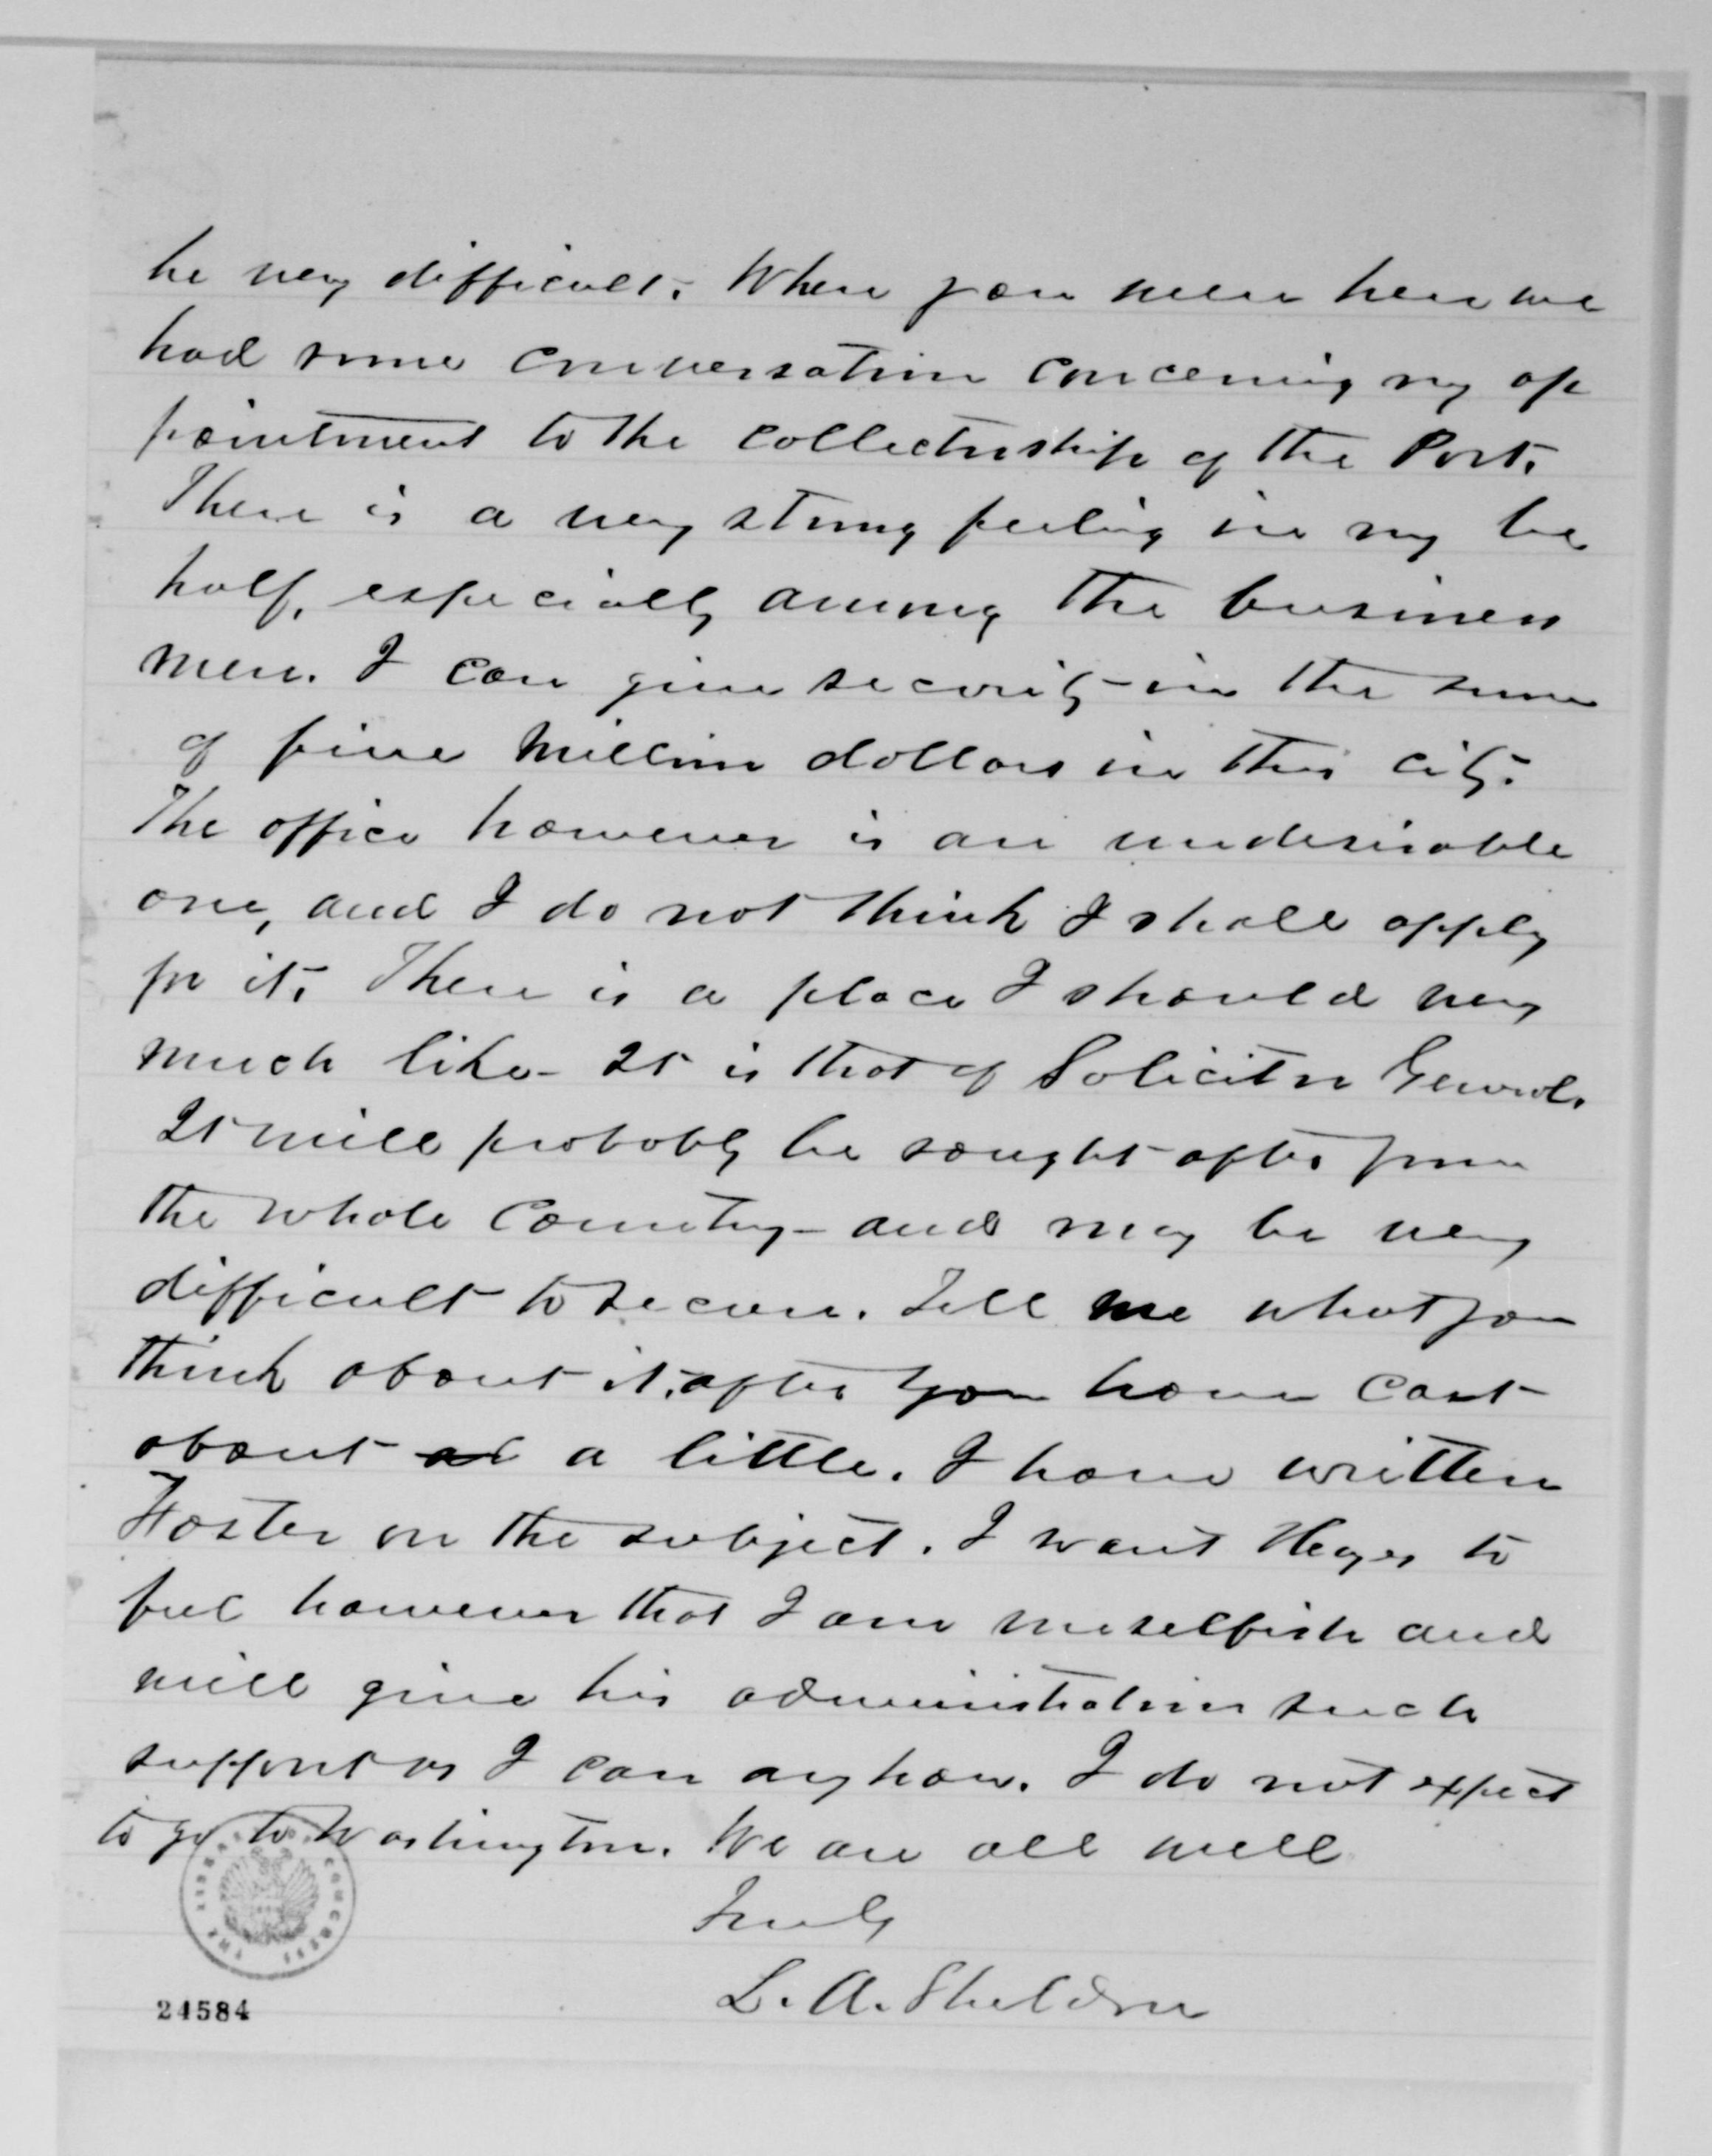 be very difficult. When you were here we
had some conversation concerning my ap
pointment to the collectorship of the Port.
There is a very strong feeling in my be
half, especially among the business
men. I can give security in the sum
of five million dollars in this city.
The office however is an undesirable
one, and I do not think I shall apply
for it. There is a place I should very
much like - It is that of Solicitor General.
It will probably be sought after from
the whole country - and may be very
difficult to secure. Tell me what you
think about it, after you have cast
about a little. I have written
Foster on the subject. I want Hayes to
feel however that I am unselfish and
will give his administration such
support as I can anyhow. I do not expect
to go to Washington. We are all well
Truly
L. A. Sheldon
THE LIBRARY OF CONGRESS
24584